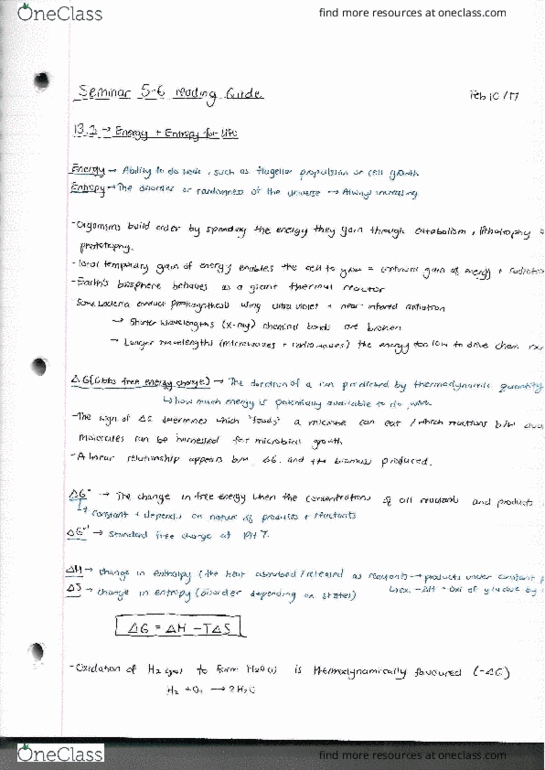 OneClass
find more resources at oneclass.com
Seminar 5-6 reading Guide
Feb 10/17
13.1 → Energy + Entropy for Life
Energy → Ability to do work, such as flagellar propulsion or cell growth
Entropy → The disorder or randomness of the universe → Always increasing
-Organisms build order by spending the energy they gain through catabolism, lithotrophy
prototophy.
-Local temporary gain of energy enables the cell to grow = continual gain of energy + radiation
-Earth's biosphere behaves as a giant thermal reactor
-Some bacteria conduct photosynthesis using ultraviolet + near-infrared radiation
→ Shorter wavelengths (x-ray) chemical bonds are broken
→ Longer wavelengths (microwaves + radiowaves) the energy too low to drive chem rxn
ΔG (Gibbs free energy change) → The direction of a rxn predicted by thermodynamic quantity
↳ how much energy is potentially available to do work
-The sign of ΔG determines which "foods" a microbe can eat / which reactions b/w
molecules can be harnessed for microbial growth.
-A linear relationship appears b/w ΔG and the biomass produced.
ΔG° → The change in free energy when the concentrations of all reactants and products
↳ constant + depends on nature of products + reactants
ΔG°' → Standard free change at pH 7.
ΔH → change in enthalpy (the heat absorbed/released as reactants → products under constant
ΔS → change in entropy (disorder depending on states)
↳ ex. -ΔH = oxi of glucose by
ΔG = ΔH - TΔS
-Oxidation of H₂ (gas) to form H₂O (l) is thermodynamically favoured (-ΔG)
H₂ + O₂ → 2H₂O
OneClass
find more resources at oneclass.com